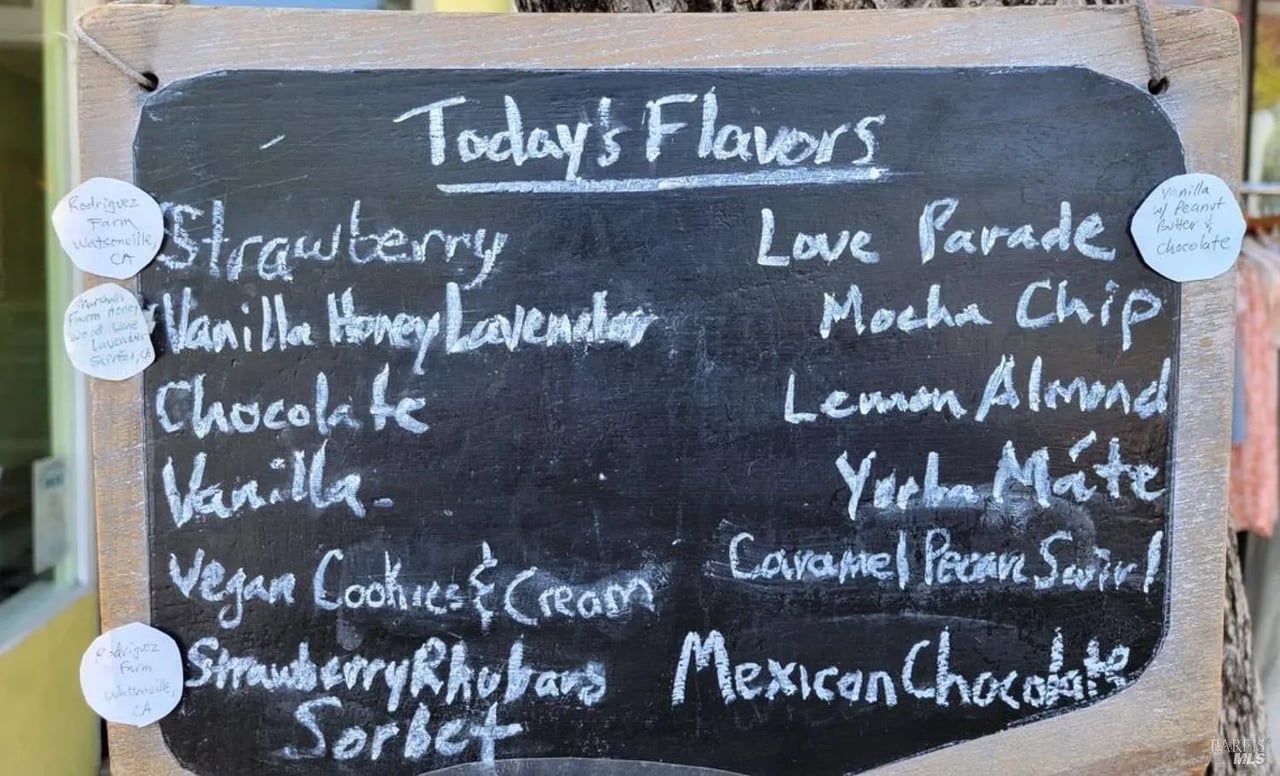 Today's Flavors
Rodriguez
Farm
Watsonville,
CA
Strawberry
Marshall's
Farm Honey
Lavender
Vanilla Honey Lavender
Chocolate
Vanilla
Vegan Cookies & Cream
Rodriguez
Farm
Watsonville,
CA
Strawberry Rhubarb
Sorbet
Love Parade
Vanilla
w/ Peanut
Butter &
Chocolate
Mocha Chip
Lemon Almond
Yerba Máte
Caramel Pecan Swirl
Mexican Chocolate
BAREIS
MLS